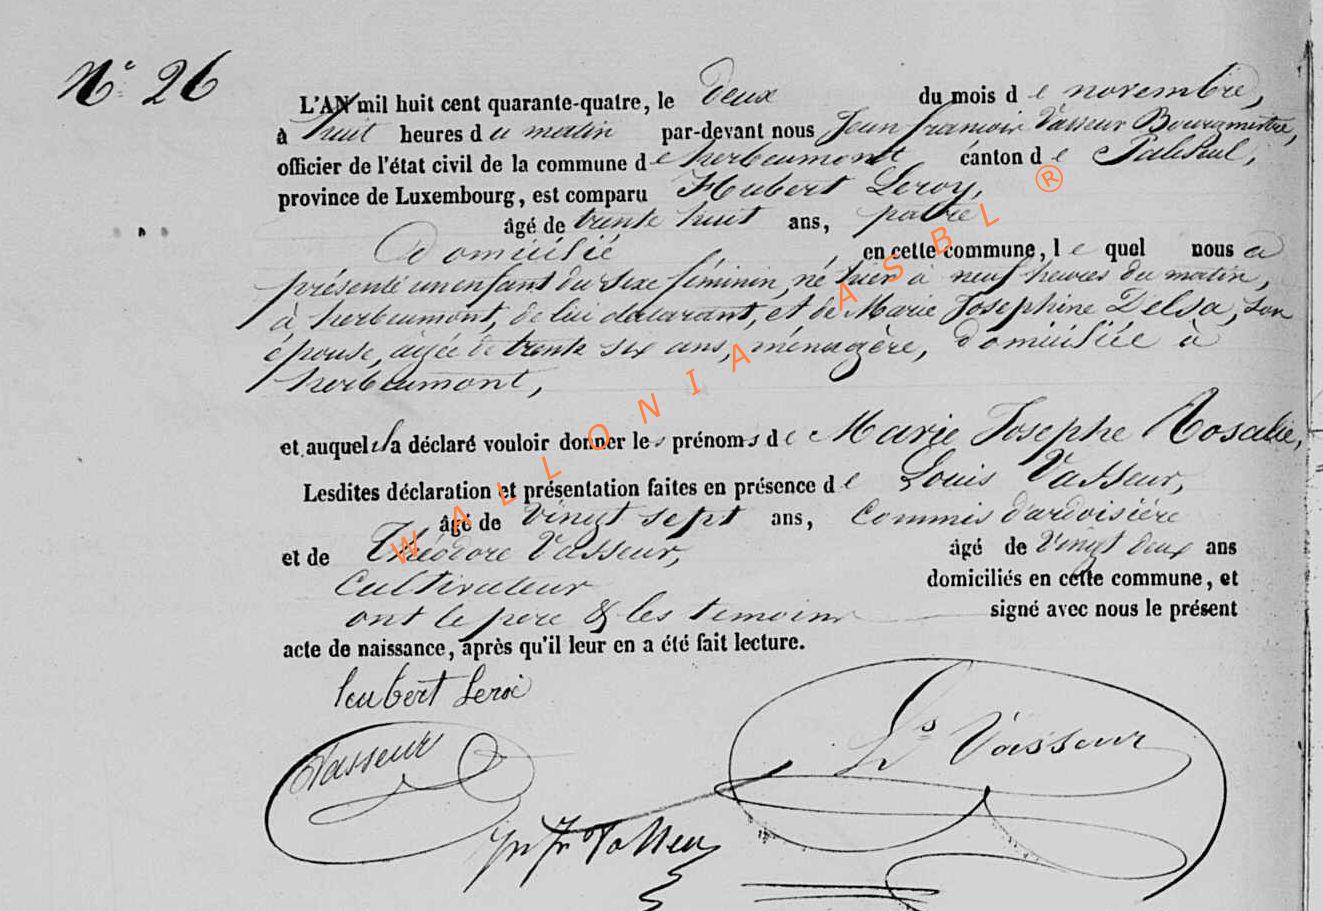 N° 26
L'AN mil huit cent quarante-quatre, le deux du mois de novembre,
à huit heures du matin par-devant nous Jean françois Vasseur Bourgmestre,
officier de l'état civil de la commune de herbeumont canton de Paliseul,
province de Luxembourg, est comparu Hubert Leroy,
âgé de trente huit ans, patre
domicilié en cette commune, le quel nous a
présenté un enfant du sexe féminin, né hier à neuf heures du matin,
à herbeumont, de lui déclarant, et de Marie Josephine Delsa, son
épouse, agée de trente six ans, ménagère, domiciliée à
herbeumont,
et auquel il a déclaré vouloir donner les prénoms de Marie Josephe Rosalie,
Lesdites déclaration et présentation faites en présence de Louis Vasseur,
âgé de vingt sept ans, Commis d'ardoisière
et de Théodore Vasseur, âgé de vingt deux ans
Cultivateur domiciliés en cette commune, et
ont le pere & les temoins signé avec nous le présent
acte de naissance, après qu'il leur en a été fait lecture.
heubert Leroi
Vasseur
Ls Vasseur
Jn Fr Vasseur
WALLONIA ASBL ®